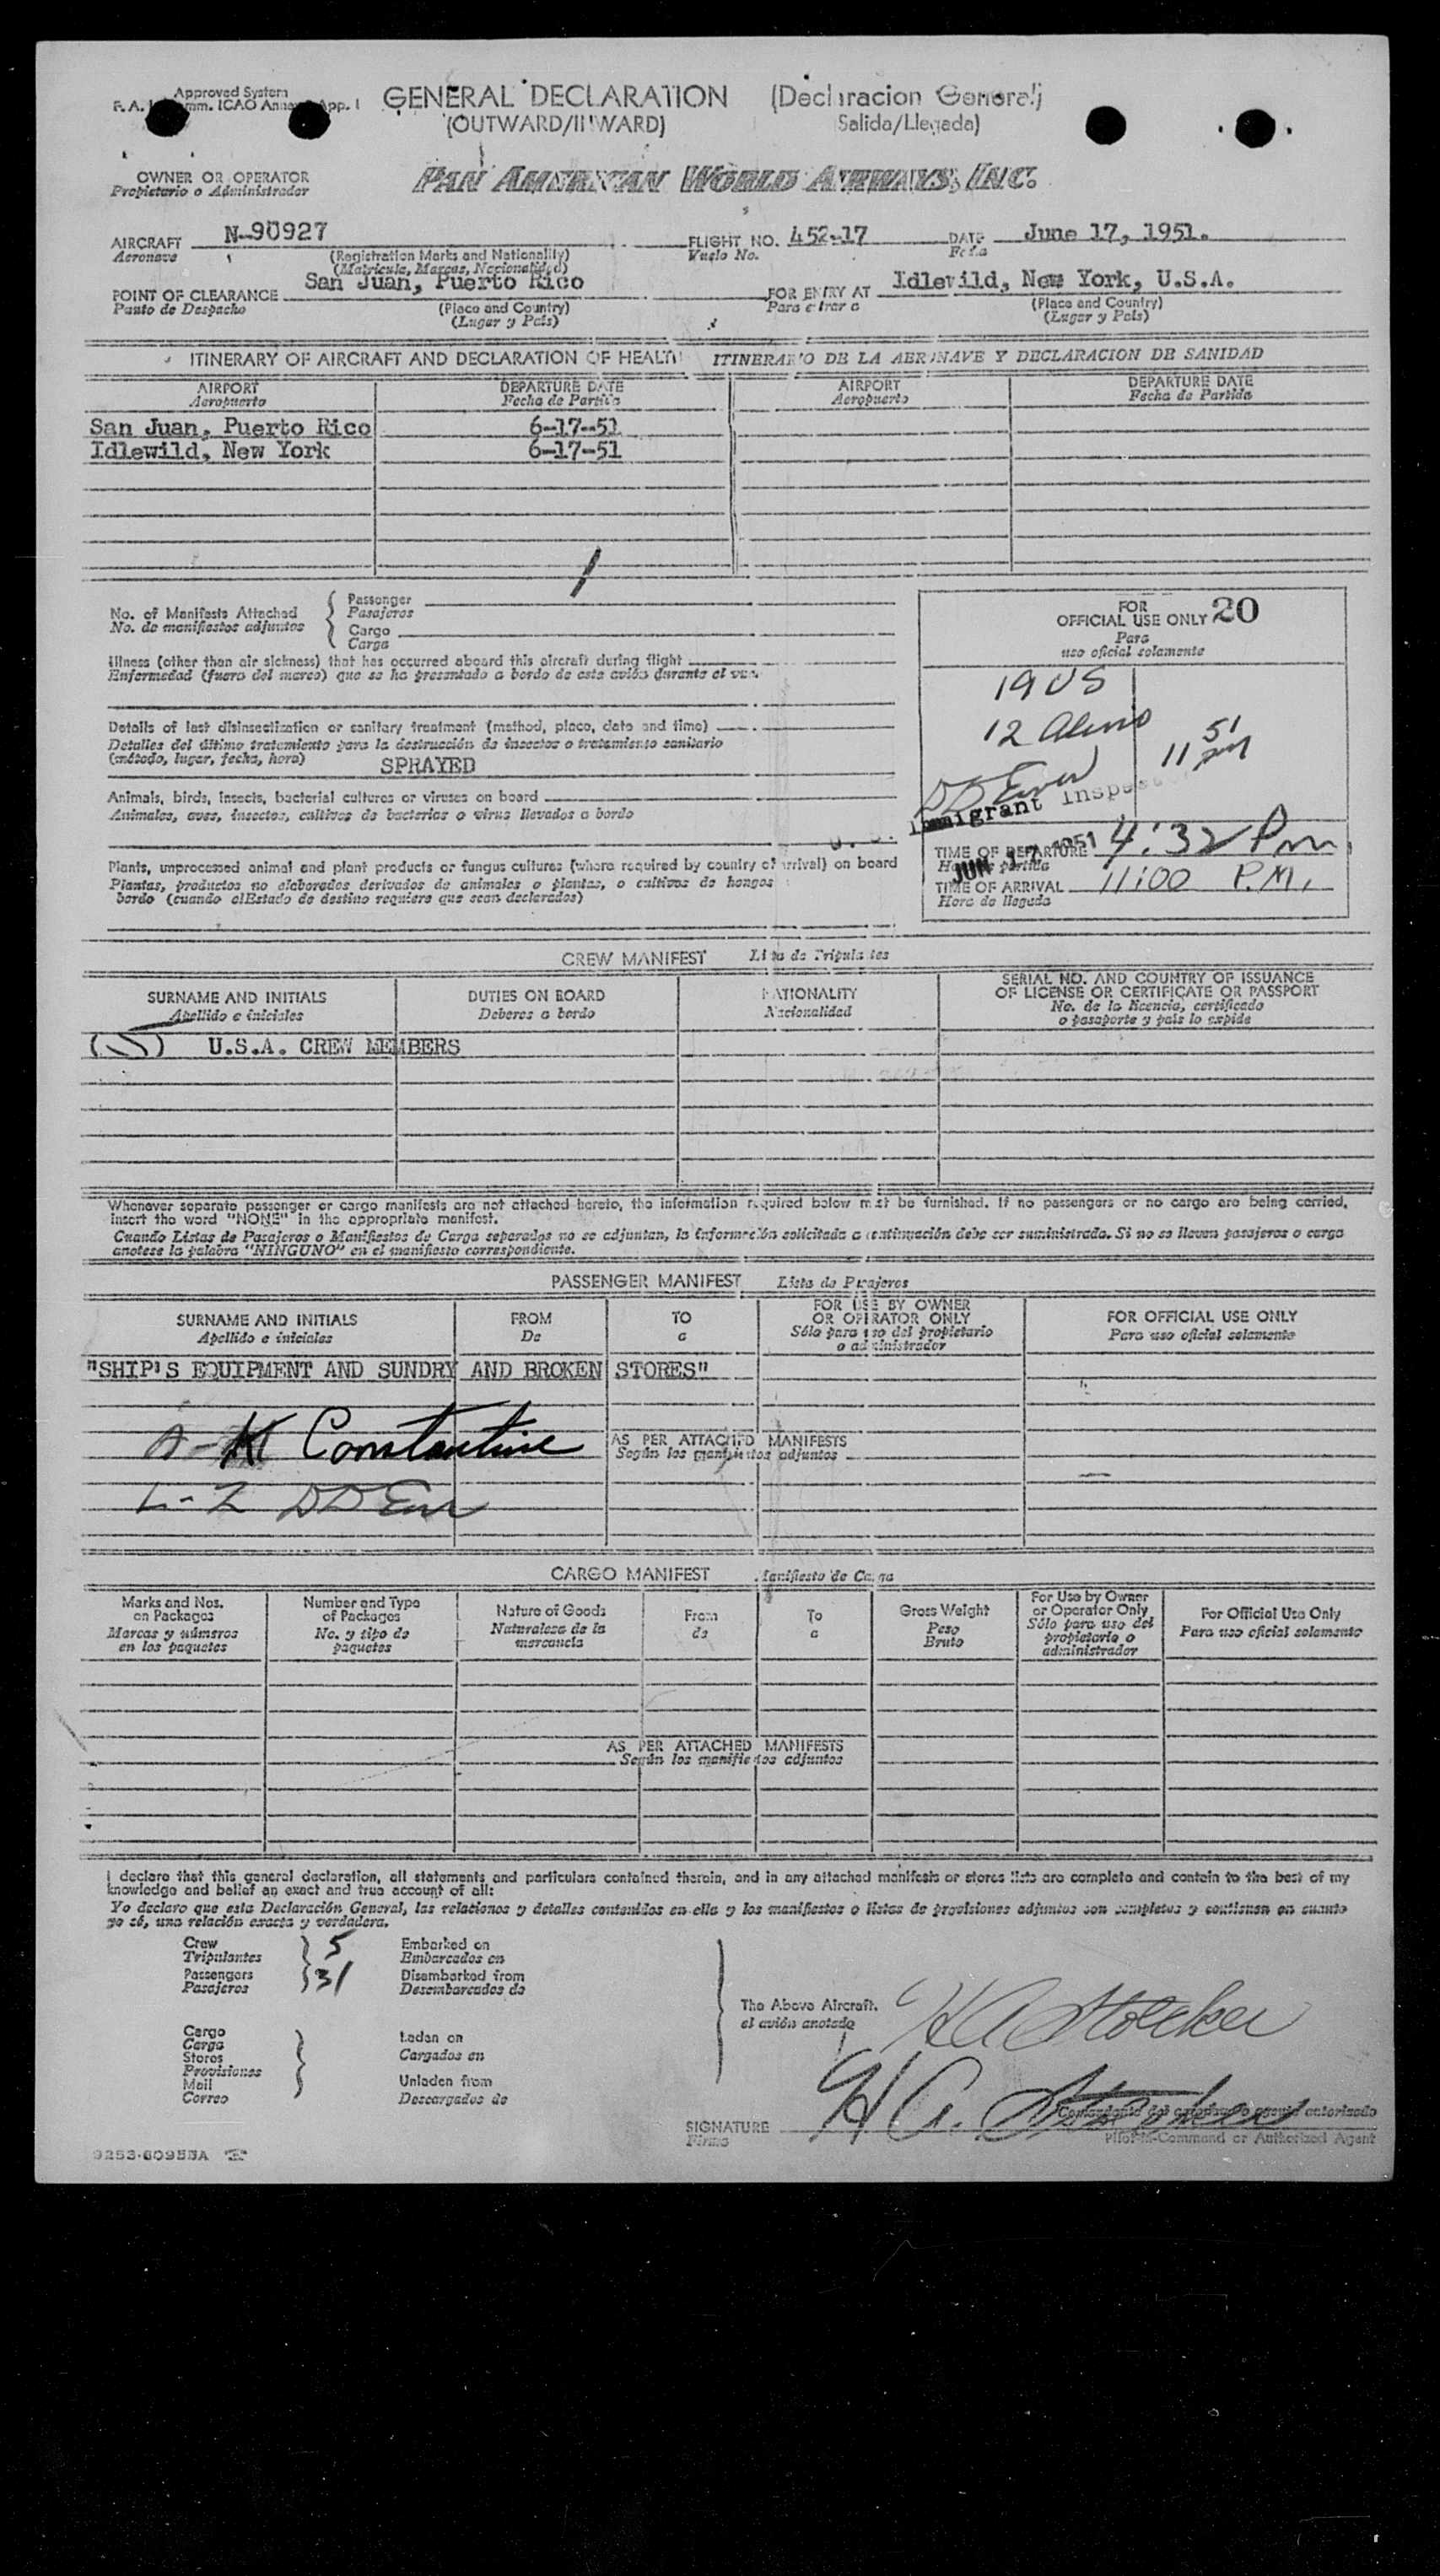 Approved System
GENERAL DECLARATION (Declaracion General)
(OUTWARD/INWARD) Salida/Llegada)
OWNER OR OPERATOR
Propietario o Administrador
PAN AMERICAN WORLD AIRWAYS, INC.
AIRCRAFT N-90927 FLIGHT NO. 452-17 DATE June 17, 1951.
Aeronave (Registration Marks and Nationality) Vuelo No. Fecha
(Matricula, Marcas, Nacionalidad)
POINT OF CLEARANCE San Juan, Puerto Rico FOR ENTRY AT Idlewild, New York, U.S.A.
Punto de Despacho (Place and Country) Para entrar a (Place and Country)
(Lugar y Pais) (Lugar y Pais)
ITINERARY OF AIRCRAFT AND DECLARATION OF HEALTH ITINERARIO DE LA AERONAVE Y DECLARACION DE SANIDAD
AIRPORT DEPARTURE DATE AIRPORT DEPARTURE DATE
Aeropuerto Fecha de Partida Aeropuerto Fecha de Partida
San Juan, Puerto Rico 6-17-51
Idlewild, New York 6-17-51
No. of Manifests Attached
No. de manifiestos adjuntos
Passenger
Pasajeros
Cargo
Carga
Illness (other than air sickness) that has occurred aboard this aircraft during flight
Enfermedad (fuera del mareo) que se ha presentado a bordo de este avión durante el
Details of last disinsectization or sanitary treatment (method, place, date and time)
Detalles del último tratamiento para la destrucción de insectos o tratamiento sanitario
(método, lugar, fecha, hora) SPRAYED
Animals, birds, insects, bacterial cultures or viruses on board
Animales, aves, insectos, cultivos de bacterias o virus llevados a bordo
Plants, unprocessed animal and plant products or fungus cultures (where required by country of arrival) on board
Plantas, productos no elaborados derivados de animales o plantas, o cultivos de hongos
bordo (cuando el Estado de destino requiere que sean declarados)
FOR
OFFICIAL USE ONLY 20
Para
uso oficial solamente
19 US
12 Aliens
11 51 pm
Immigrant Inspector
JUN 17 1951
TIME OF DEPARTURE 4:32 Pm.
Hora de partida
TIME OF ARRIVAL 11:00 P.M.
Hora de llegada
CREW MANIFEST Lista de Tripulantes
SURNAME AND INITIALS DUTIES ON BOARD NATIONALITY SERIAL NO. AND COUNTRY OF ISSUANCE
OF LICENSE OR CERTIFICATE OR PASSPORT
Apellido e iniciales Deberes a bordo Nacionalidad No. de la licencia, certificado
o pasaporte y pais lo expide
(5) U.S.A. CREW MEMBERS
Whenever separate passenger or cargo manifests are not attached hereto, the information required below must be furnished. If no passengers or no cargo are being carried,
insert the word "NONE" in the appropriate manifest.
Cuando Listas de Pasajeros o Manifiestos de Carga separados no se adjuntan, la información solicitada a continuación debe ser suministrada. Si no se llevan pasajeros o carga
anotese la palabra "NINGUNO" en el manifiesto correspondiente.
PASSENGER MANIFEST Lista de Pasajeros
SURNAME AND INITIALS FROM TO FOR USE BY OWNER
OR OPERATOR ONLY FOR OFFICIAL USE ONLY
Apellido e iniciales De a Sólo para uso del propietario
o administrador Para uso oficial solamente
"SHIP'S EQUIPMENT AND SUNDRY AND BROKEN STORES"
K Constantine
AS PER ATTACHED MANIFESTS
Según los manifiestos adjuntos
L-2
CARGO MANIFEST Manifiesto de Carga
Marks and Nos.
on Packages
Marcas y números
en los paquetes
Number and Type
of Packages
No. y tipo de
paquetes
Nature of Goods
Naturaleza de la
mercancia
From
de
To
a
Gross Weight
Peso
Bruto
For Use by Owner
or Operator Only
Sólo para uso del
propietario o
administrador
For Official Use Only
Para uso oficial solamente
AS PER ATTACHED MANIFESTS
Según los manifiestos adjuntos
I declare that this general declaration, all statements and particulars contained therein, and in any attached manifests or stores lists are complete and contain to the best of my
knowledge and belief an exact and true account of all:
Yo declaro que esta Declaración General, las relaciones y detalles contenidos en ella y los manifiestos o listas de provisiones adjuntos son completos y contienen en cuanto
yo sé, una relación exacta y verdadera.
Crew 5 Embarked on
Tripulantes Embarcados en
Passengers 31 Disembarked from
Pasajeros Desembarcados de
The Above Aircraft.
el avión anotado
H A Stoecker
Cargo
Carga
Stores
Provisiones
Mail
Correo
Laden on
Cargados en
Unladen from
Descargados de
SIGNATURE H A. Stoecker
Firma
Pilot-in-Command or Authorized Agent
9253-60955A